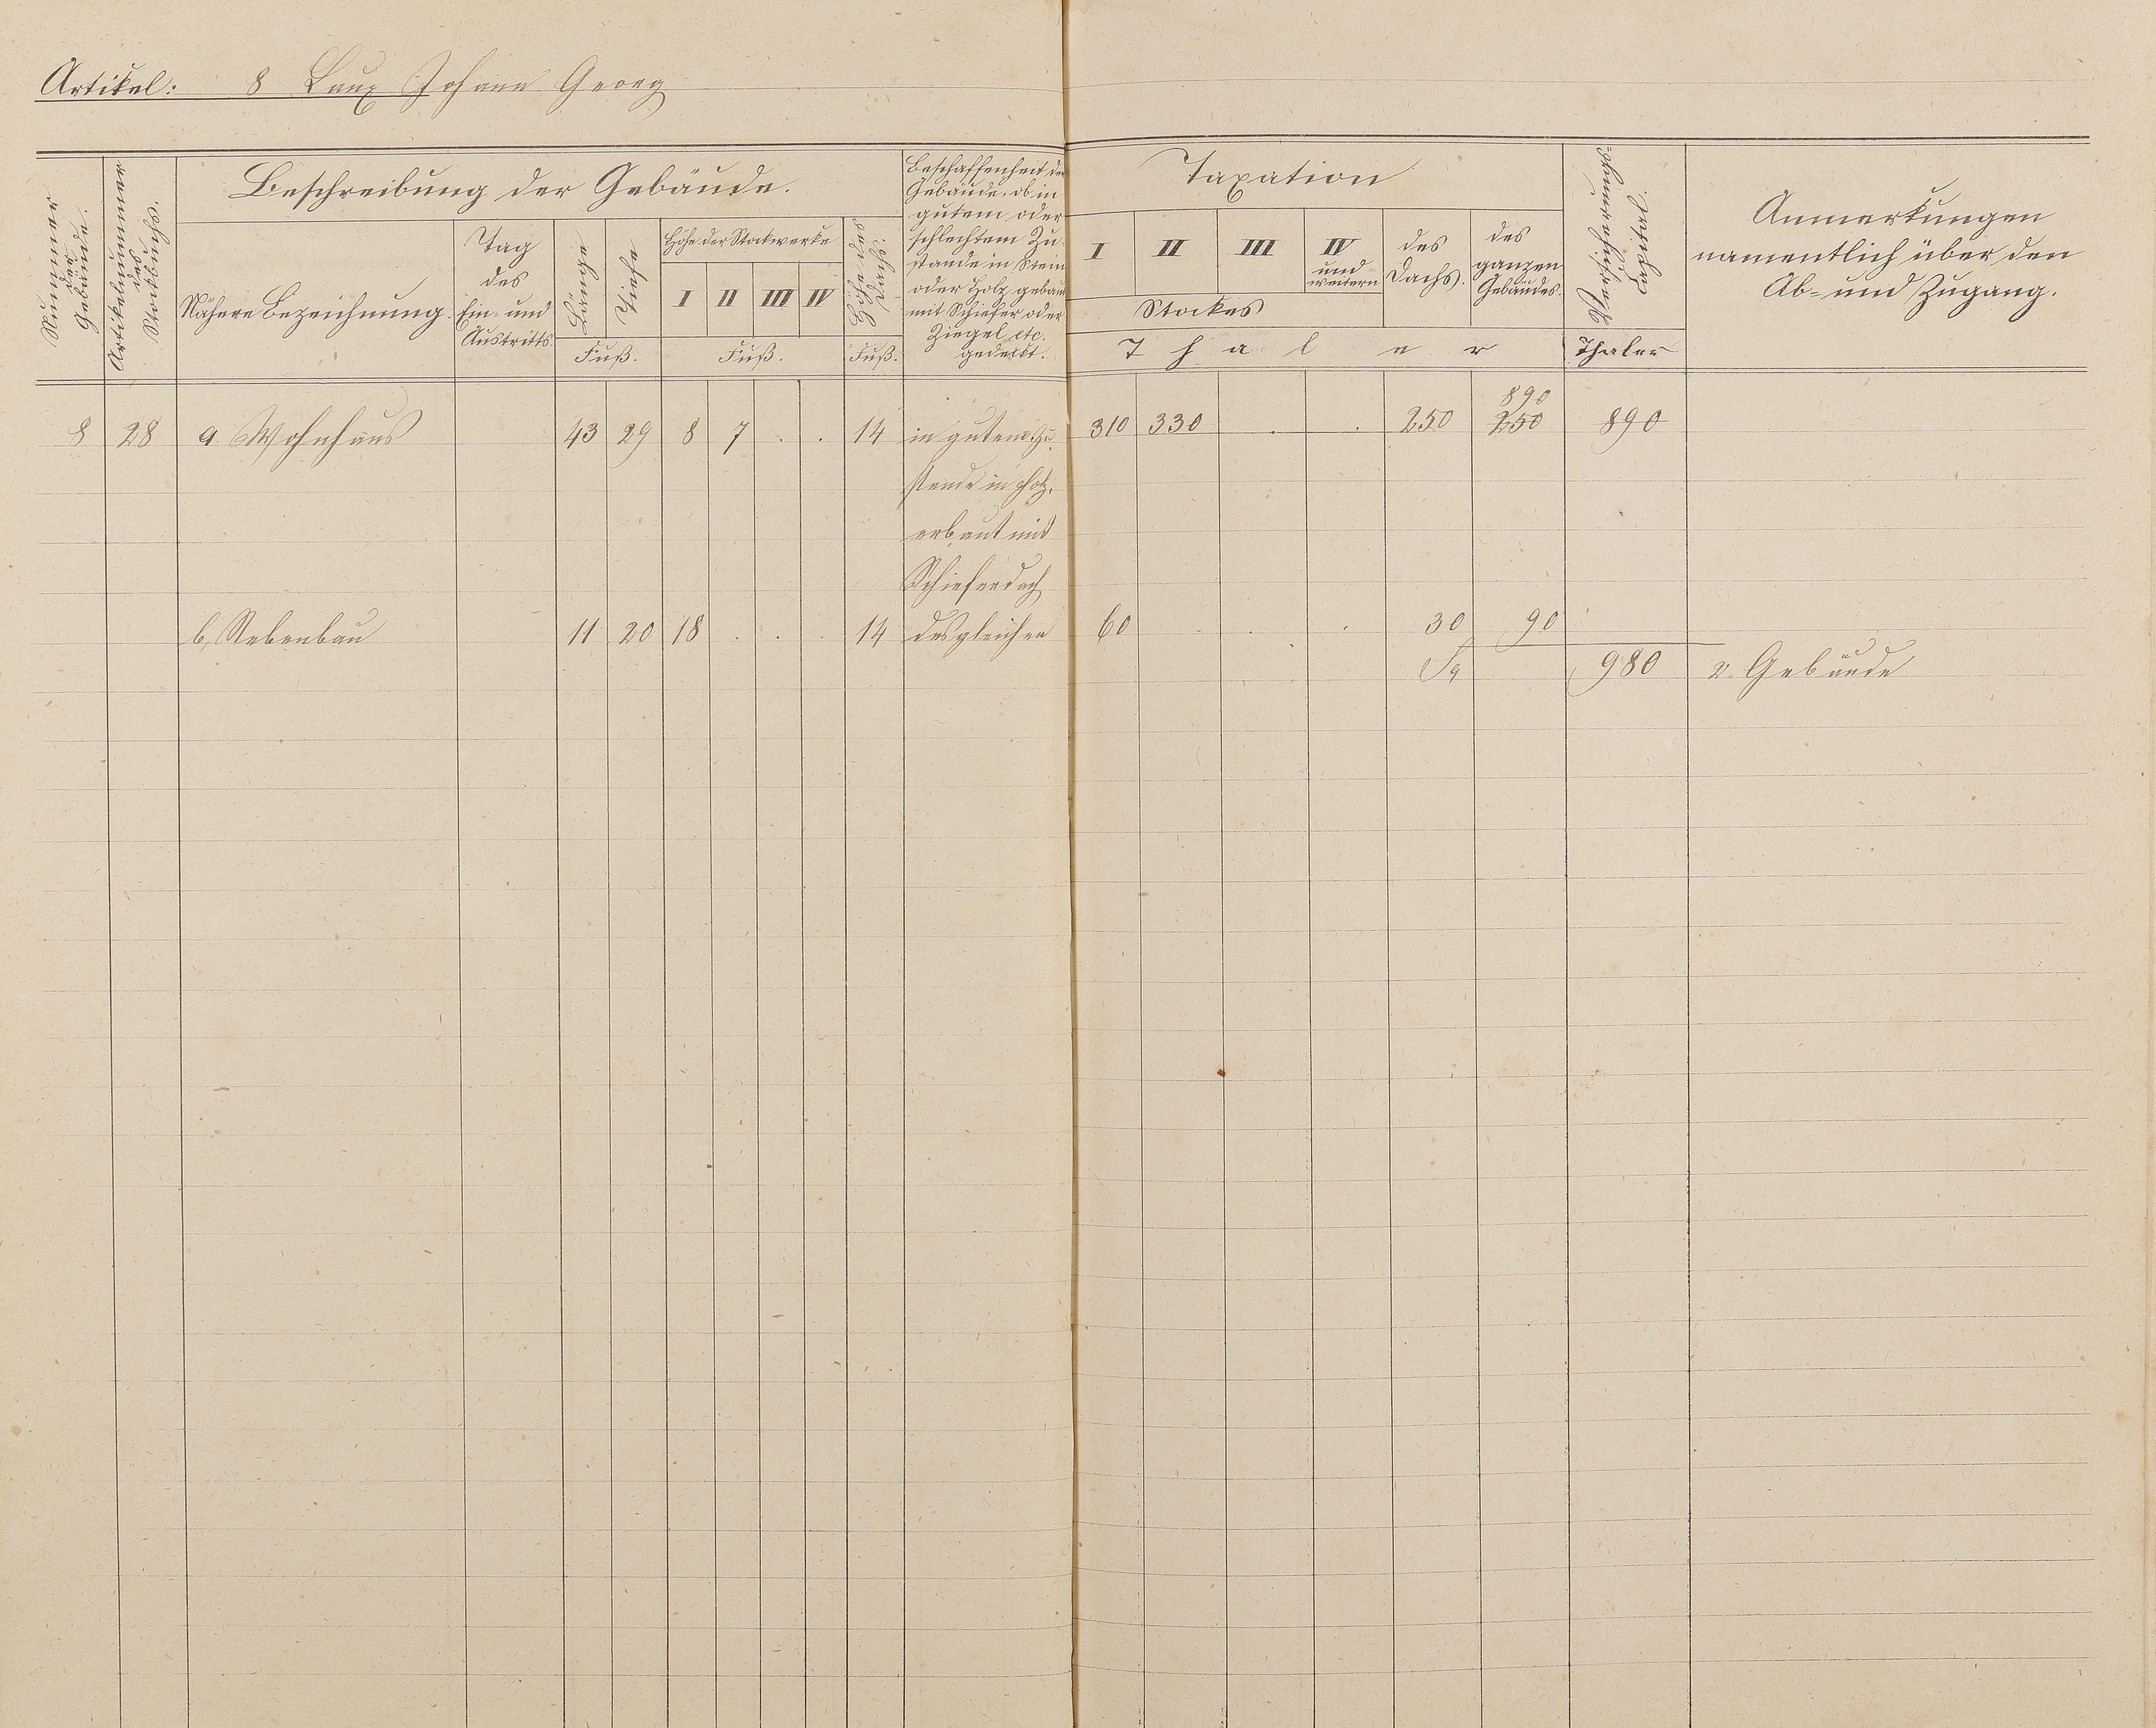 Artikel: 8 Laux Johann Georg
Nummer der Gebäude.
Artikelnummer des Stockbuchs.
Beschreibung der Gebäude.
Nähere Bezeichnung.
Tag des Ein- und Austritts
Länge
Tiefe
Fuß.
Höhe der Stockwerke
I II III IV
Fuß.
Höhe des Dachs.
Fuß.
Beschaffenheit der
Gebäude, ob in
gutem oder
schlechtem Zu-
stande in Stein
oder Holz gebaut
mit Schiefer oder
Ziegel etc.
gedeckt.
Taxation
I II III IV und weitern
Stockes
des Dachs.
des ganzen Gebäudes.
Thaler
Thaler
Anmerkungen
namentlich über den
Ab- und Zugang.
890
8 28 a Wohnhaus 43 29 8 7 . . 14 in gutem Zu- 310 330 . . 250 250 890
stande in Holz
erbaut mit
Schieferdach
b, Nebenbau 11 20 18 . . . 14 desgleichen 60 . . . 30 90
Sa 980 2 Gebäude